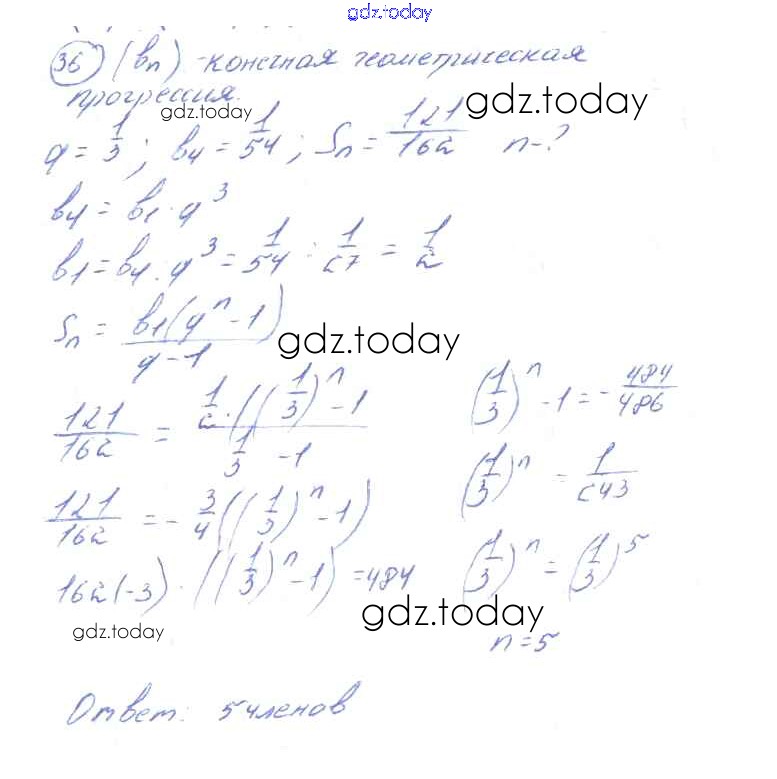 gdz.today
36 (bn) - конечная геометрическая
прогрессия.
gdz.today
gdz.today
q = 1/3; b4 = 1/54; Sn = 121/162 n-?
b4 = b1 · q^3
b1 = b4 : q^3 = 1/54 : 1/27 = 1/2
Sn = b1(q^n - 1)/q - 1
gdz.today
121/162 = 1/2 · ((1/3)^n - 1)/1/3 - 1
121/162 = - 3/4((1/3)^n - 1)
162(-3) · ((1/3)^n - 1) = 484
gdz.today
(1/3)^n - 1 = - 484/486
(1/3)^n = 1/243
(1/3)^n = (1/3)^5
gdz.today
n = 5
Ответ: 5 членов